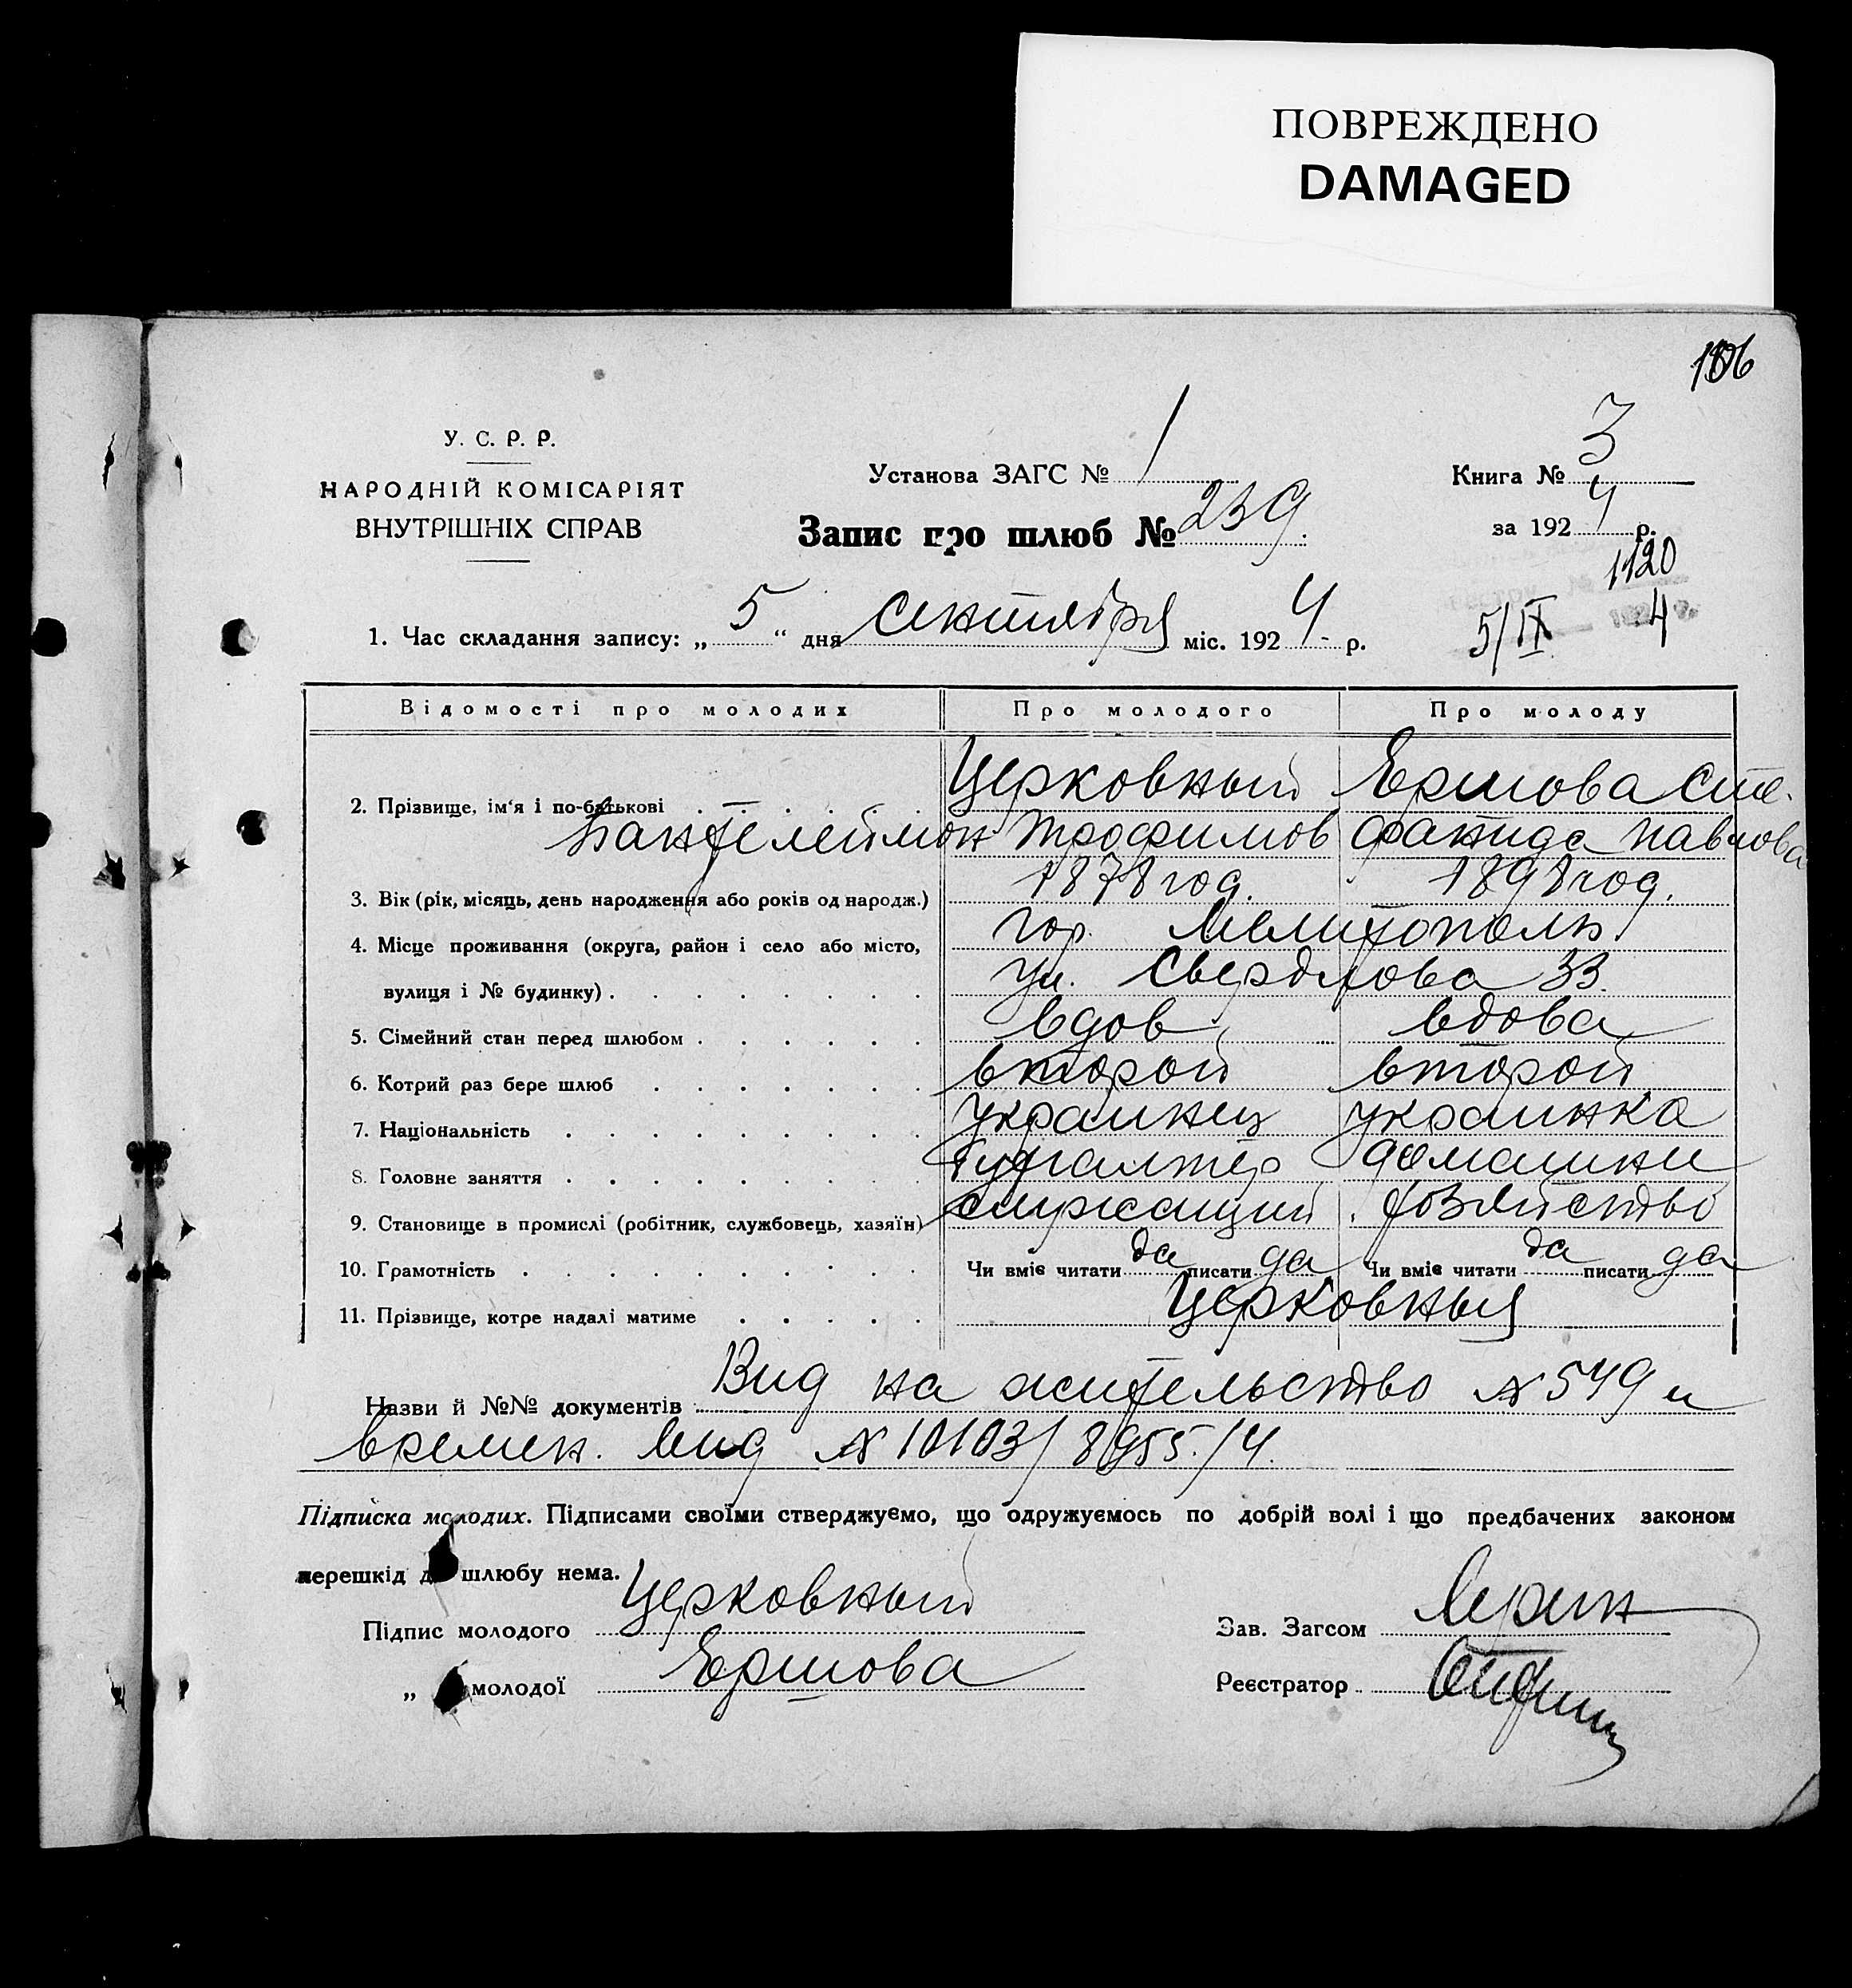 ПОВРЕЖДЕНО
DAMAGED
106
У. С. Р. Р.
НАРОДНІЙ КОМІСАРІЯТ
ВНУТРІШНІХ СПРАВ
Установа ЗАГС № 1
Запис про шлюб № 239.
Книга № 3
за 1924 р.
1120
5/IX 4
1. Час складання запису: „ 5 “ дня сентября міс. 1924 р.
Відомості про молодих Про молодого Про молоду
Церковный Ершова Сте-
2. Прізвище, ім'я і по-батькові
Пантелеймон Трофимов фанида Павлова
3. Вік (рік, місяць, день народження або років од народж.) 1878 год. 1898 год.
4. Місце проживання (округа, район і село або місто, гор. Мелитополь
вулиця і № будинку) ул. Свердлова 33.
5. Сімейний стан перед шлюбом вдов вдова
6. Котрий раз бере шлюб второй второй
7. Національність украинец украинка
8. Головне заняття бухгалтер домашни
9. Становище в промислі (робітник, службовець, хазяїн) служащий хозяйство
10. Грамотність Чи вміє читати да писати да Чи вміє читати да писати да
11. Прізвище, котре надалі матиме Церковныя
Назви й №№ документів Вид на жительство № 549 и
времен. вид № 10103/8955./4.
Підписка молодих. Підписами своїми стверджуємо, що одружуємось по добрій волі і що предбачених законом
перешкід д шлюбу нема.
Підпис молодого Церковный
Зав. Загсом
„ молодої Ершова
Реєстратор